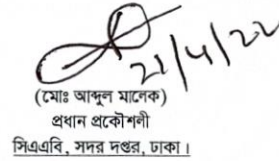 21/4/22
(মোঃ আব্দুল মালেক)
প্রধান প্রকৌশলী
সিএএবি, সদর দপ্তর, ঢাকা।